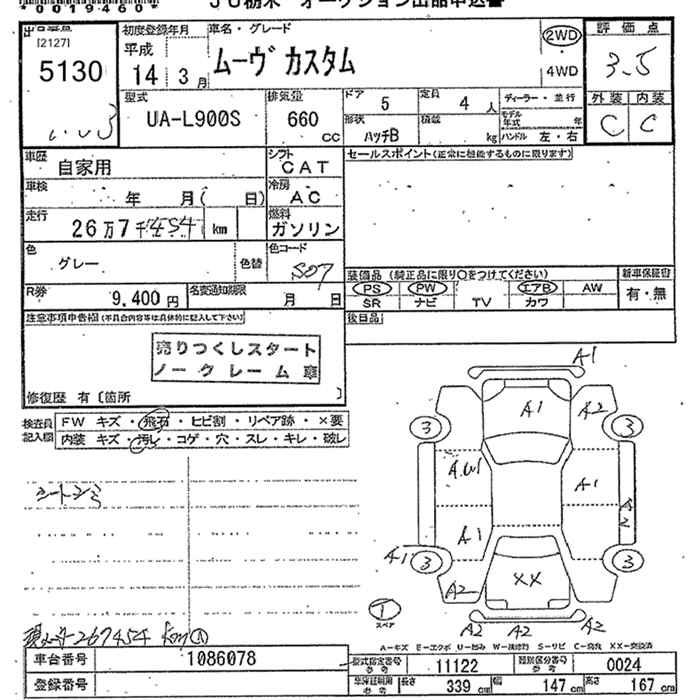 *0019460*
JU栃木 オークション出品申込書
[2127]
5130
初度登録年月
平成
14年3月
車名・グレード
ムーヴカスタム
2WD
4WD
評価点
3.5
外装 内装
C C
型式
UA-L900S
排気量
660
CC
ドア
5
定員
4人
形状
ハッチB
積載
kg
ディーラー・並行
モデル年式 年
ハンドル 左・右
車歴
自家用
シフト
CAT
セールスポイント(正常に機能するものに限ります)
車検
年 月( 日)
冷房
AC
走行
26万7千454 km
燃料
ガソリン
色
グレー
色替
色コード
S07
R券
9,400円
名変通知期限
月 日
装備品(純正品に限り○をつけてください)
新車保証書
PS PW エアB AW
SR ナビ TV カワ
有・無
後日品
注意事項申告欄(不具合内容等は具体的に記入して下さい)
売りつくしスタート
ノークレーム車
修復歴 有〔箇所 〕
検査員
記入欄
FW キズ・飛石・ヒビ割・リペア跡・×要
内装 キズ・汚レ・コゲ・穴・スレ・キレ・破レ
シートシミ
A1
A1
A2
3
3
A.W1
A1
A2
A1
A1
3
3
A2
XX
1
スペア
A2 A2 A2
267454 km
A-キズ E-エクボ U-凹み W-補修跡 S-サビ C-腐食 XX-交換済
車台番号
1086078
登録番号
型式指定番号
参考
11122
類別区分番号
参考
0024
車庫証明用
参考
長さ
339 cm
幅
147 cm
高さ
167 cm